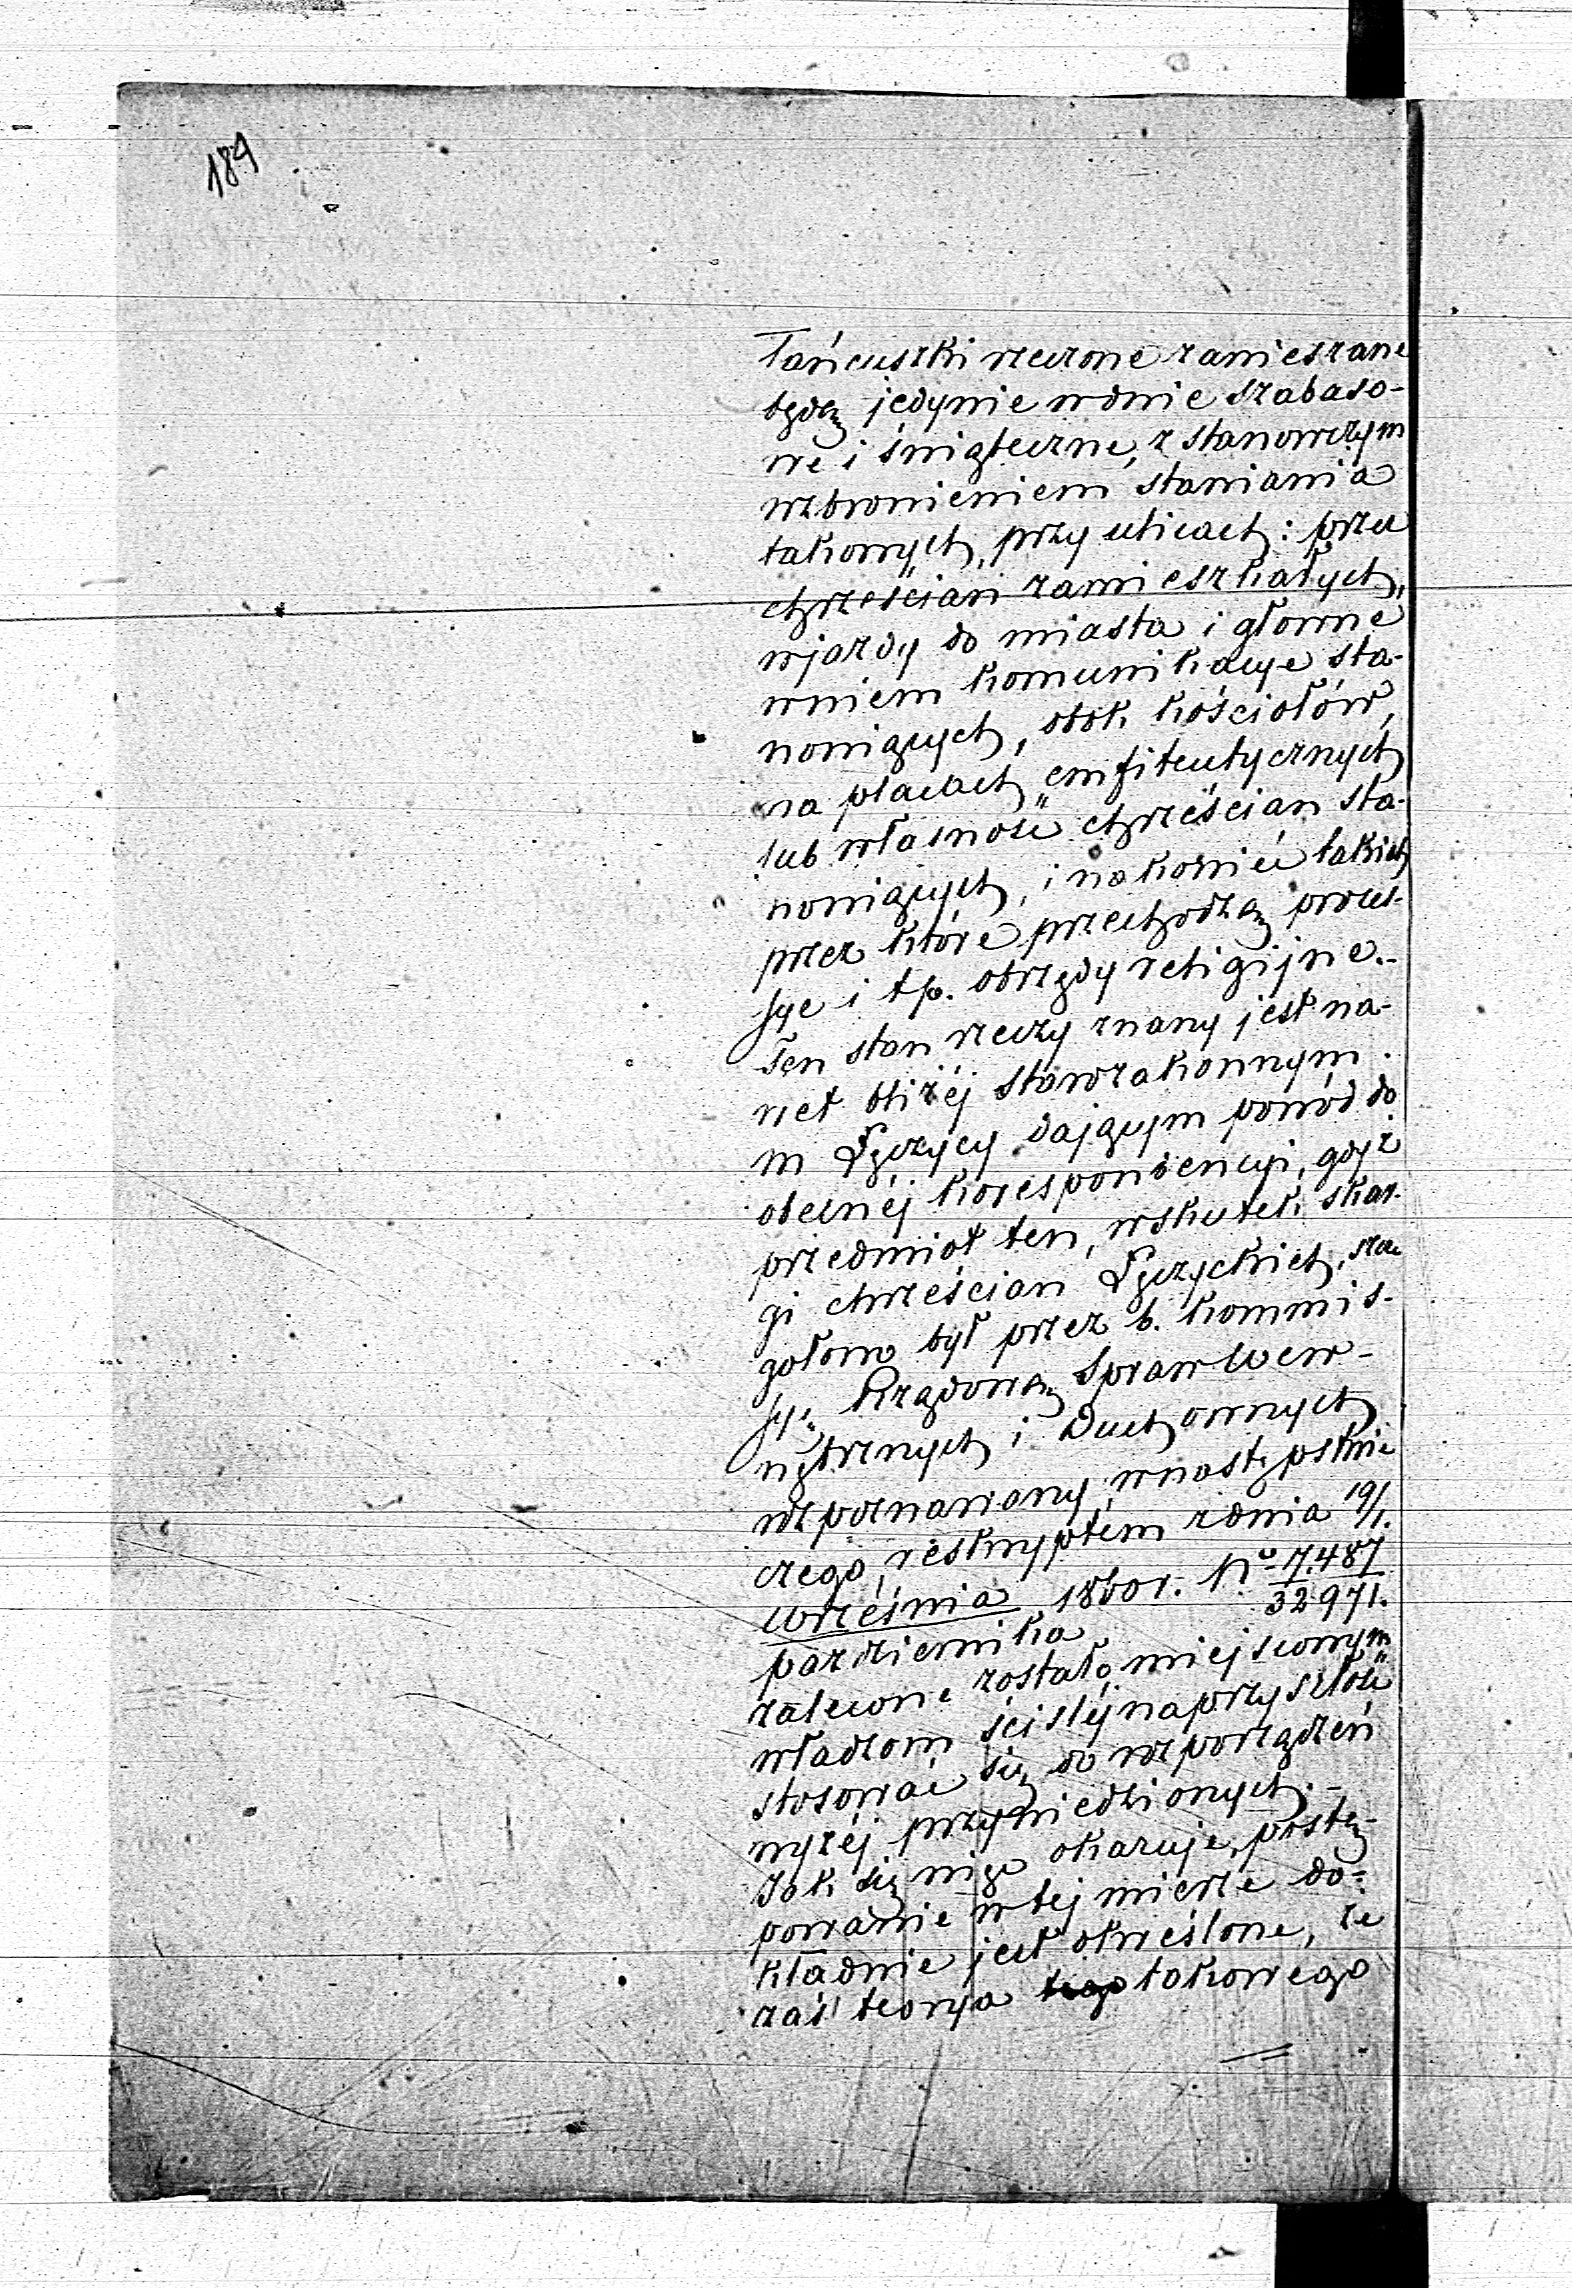 184
łańcuszki rzeczone zawieszane
będą jedynie w dnie szabaso-
we i świąteczne, z stanowczym
wzbronieniem stawiania
takowych, przy ulicach: przez
chrześcian zamieszkałych,
wjazdy do miasta i główne
w niem komunikacye sta-
nowiących, obok kościołów,
na placach emfiteutycznych
lub własność chrześcian sta-
nowiących, i nakoniec takich
przez które przechodzą proces-
sye i t p. obrzędy religijne.-
Ten stan rzeczy znany jest na-
wet bliżéj starozakonnym
w Łęczycy dającym powód do
obecnéj korespondencyi, gdyż
przedmiot ten, wskutek skar-
gi chrześcian Łęczyckich, szcze
gołowo był przez b. Kommis-
syą Rządową Spraw Wew-
nętrznych i Duchownych
rozpoznawany, w następstwie
czego, reskryptem z dnia 19/1.
Września 1860 r. No 7.487
października 32971.
zalecone zostało miejscowym
władzom ściśléj na przyszłość
stosować się do rozporządzeń
wyżéj przywiedzionych.-
Jak się więc okazuje, postę-
powanie w tej mierze do-
kładnie jest określone, że
zaś teorya tego takowego